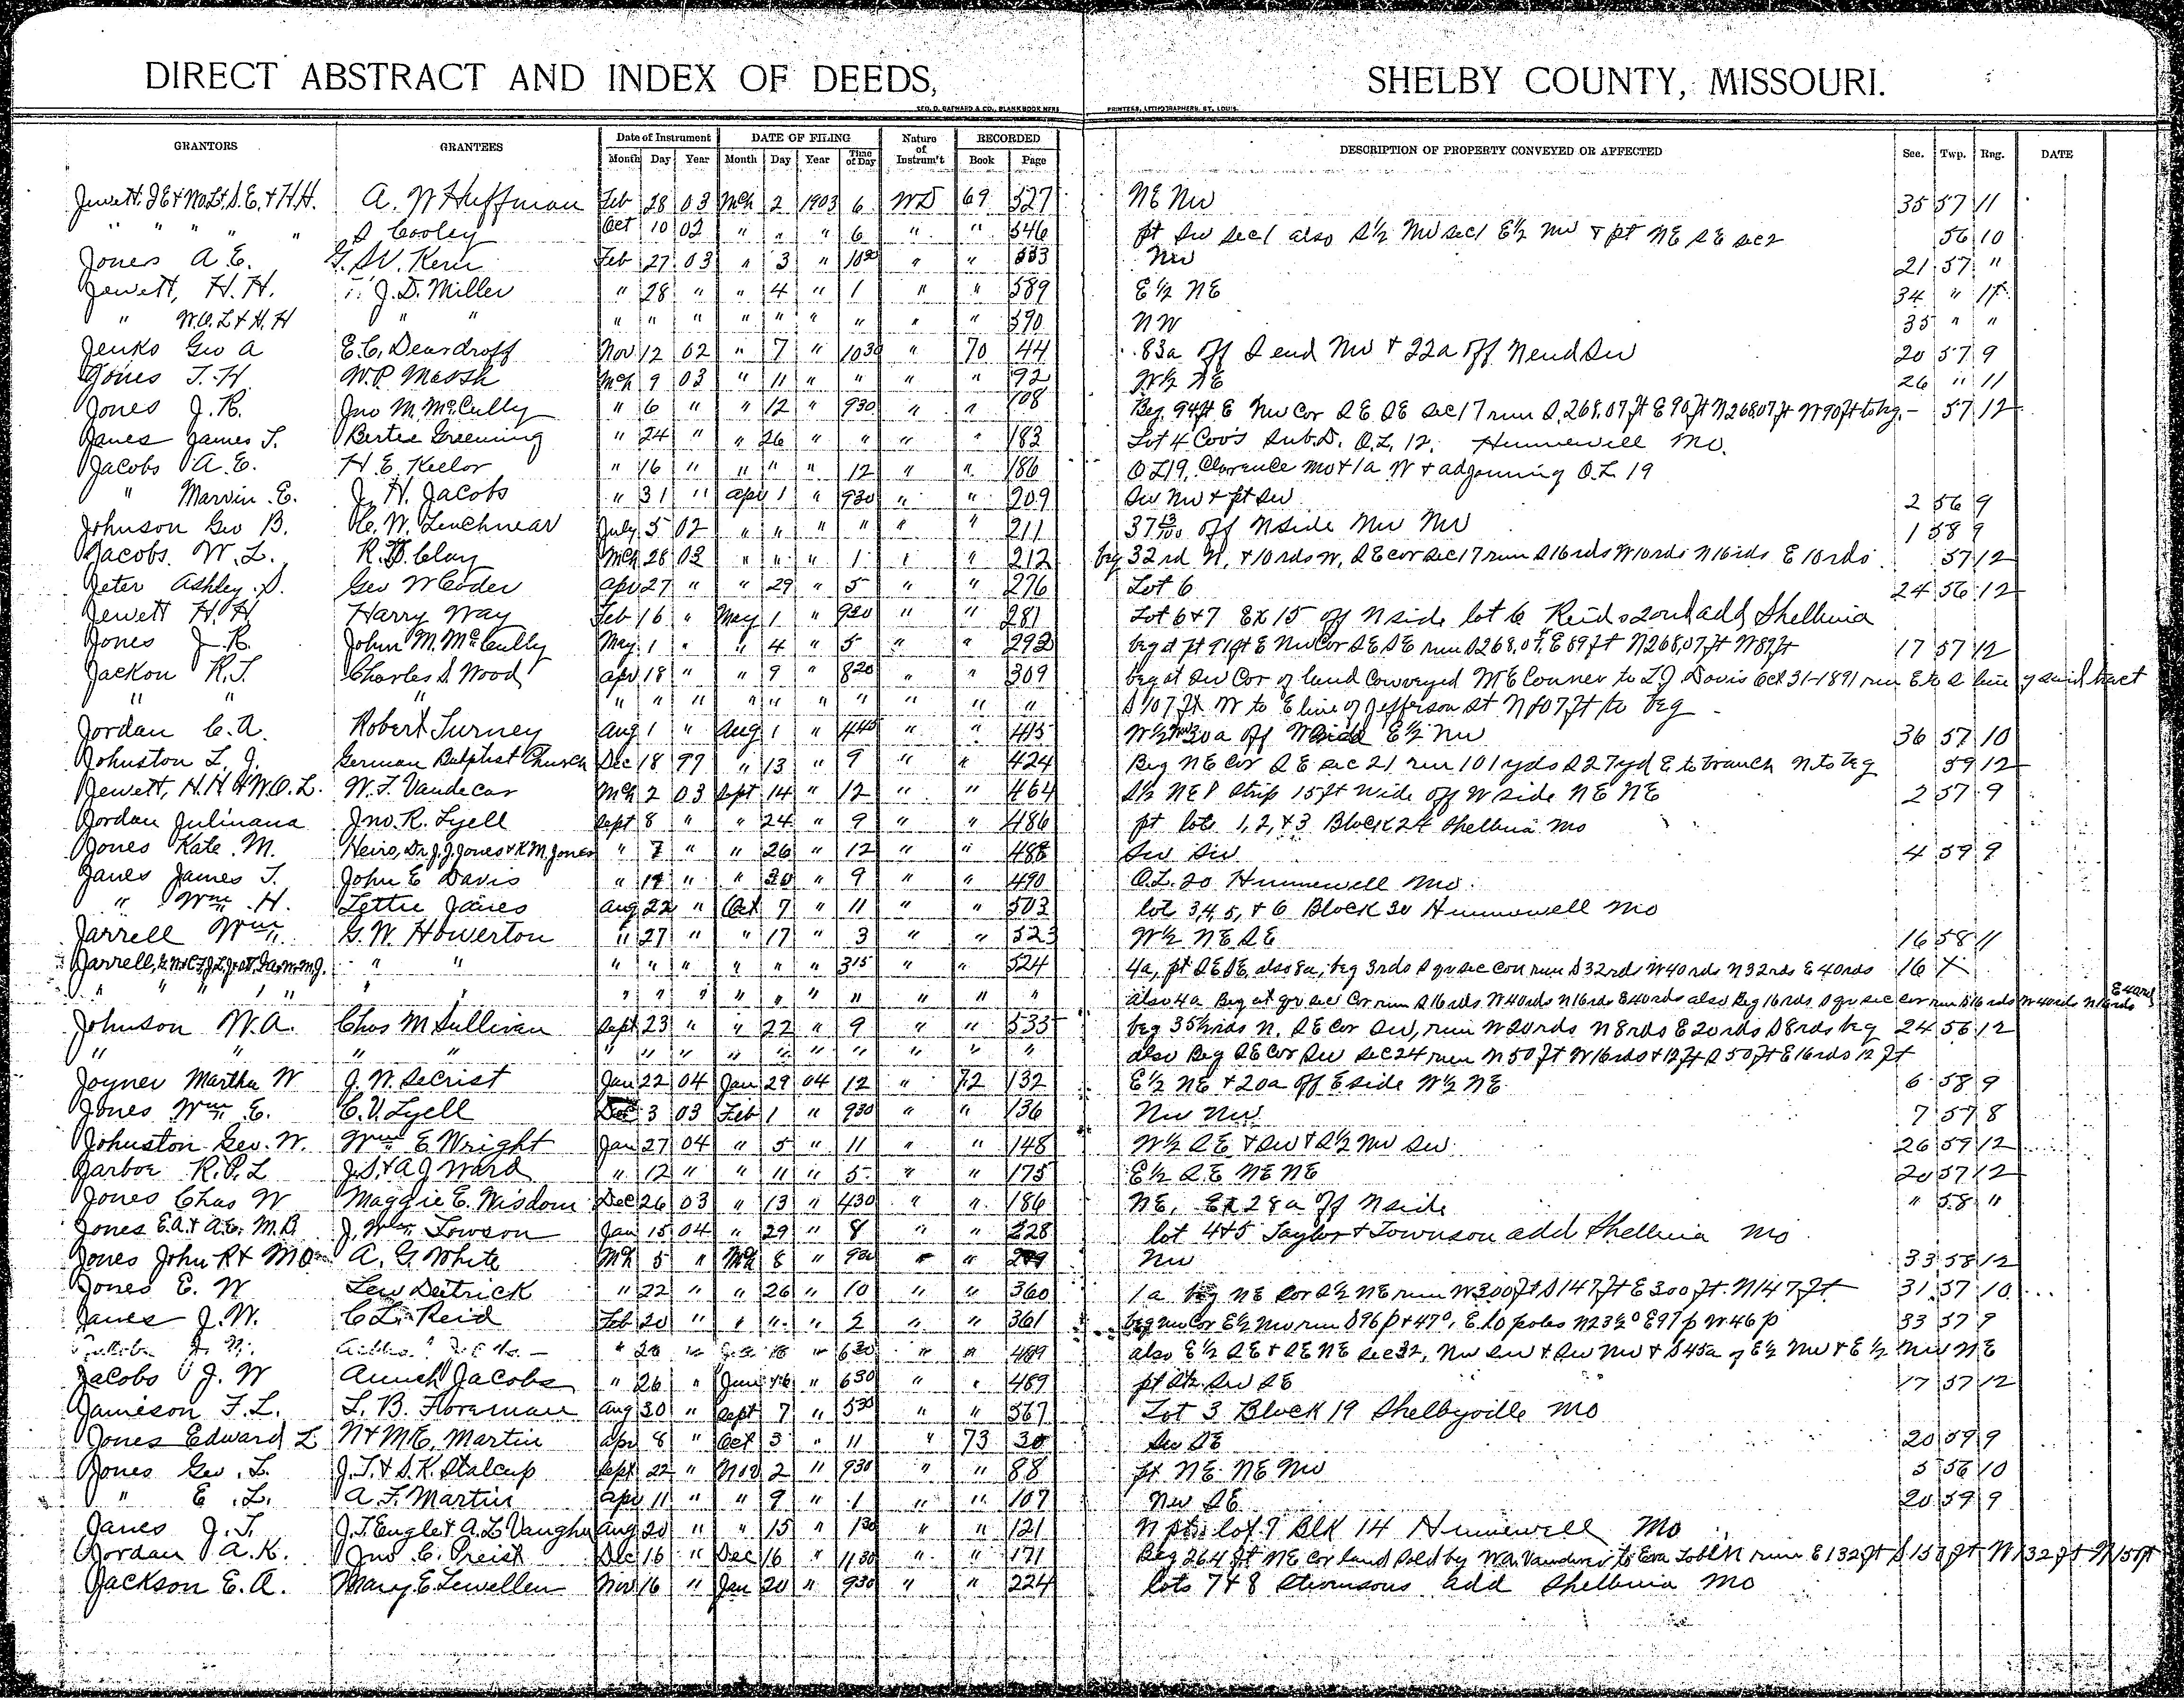 DIRECT ABSTRACT AND INDEX OF DEEDS, SHELBY COUNTY, MISSOURI.
GEO. D. BARNARD & CO., BLANK BOOK MFRS PRINTERS, LITHOGRAPHERS, ST. LOUIS.
GRANTORS GRANTEES Date of Instrument DATE OF FILING Nature of Instrum't RECORDED DESCRIPTION OF PROPERTY CONVEYED OR AFFECTED Sec. Twp. Rng. DATE
Month Day Year Month Day Year Time of Day Book Page
Jewett, J E & W.O.L, S.E. & H.H. A. W Huffman Feb 28 03 Mch 2 1903 6 WD 69 527 NE NW 35 57 11
" " " " " S Cooley Oct 10 02 " " " 6 " " 546 pt SW sec 1 also S½ NW sec 1 E½ NW & pt NE SE sec 2 56 10
Jones A E. G. W. Kern Feb 27 03 " 3 " 10 " " 533 NW 21 57 "
Jewett, H. H. J. D. Miller " 28 " " 4 " 1 " " 589 E½ NE 34 " 11
" W.O.L & H.H " " " " " " " " " " " 590 NW 35 " "
Jenks Geo A E. C. Deardroff Nov 12 02 " 7 " 1030 " 70 44 83a off S end NW & 22a off N end SW 20 57 9
Jones T. H W. P. Marsh Mch 9 03 " 11 " " " " 92 W½ NE 26 " 11
Jones J. R. Jno M. McCully " 6 " " 12 " 930 " " 108 Beg. 94ft E NW Cor SE SE sec 17 run S 268.07 ft E 90 ft N 268.07 ft W 90 ft to beg. - 57 12
Janes James T. Bertee Greening " 24 " " 26 " " " " 183 Lot 4 Coo's Sub.D. O.L. 12. Hunnewell Mo.
Jacobs A. E. H. E. Keelor " 16 " " " " 12 " " 186 O L 19, Clarence Mo & 1a W & adjoining O.L 19
" Marvin E. J. H. Jacobs " 31 " Apr 1 " 930 " " 209 SW NW & pt SW 2 56 9
Johnson Geo B. C. W. Linchnear July 5 02 " " " " " " 211 37 13/100 off N side NW NW 1 58 9
Jacobs W. L. R. B. Clay Mch 28 03 " " " 1 " " 212 beg 32 rd N, & 10 rds W, SE cor sec 17 run S 16 rds W 10 rds N 16 rds E 10 rds 57 12
Jeter Ashley S. Geo W Coder Apr 27 " " 29 " 5 " " 276 Lot 6 24 56 12
Jewett H. H Harry Way Feb 16 " May 1 " 920 " " 281 Lot 6 & 7 Ex 15 off N side lot 6 Reids 2ond add Shelbina
Jones J. R. John M. McCully May 1 " " 4 " 5 " " 292 beg at pt 91 ft E NW Cor SE SE run S 268.07, E 89 ft N 268.07 ft W 89 ft 17 57 12
Jackon R. T. Charles S. Wood Apr 18 " " 9 " 820 " " 309 beg at SW Cor of land Conveyed M E Conner to L J Davis Oct 31-1891 run E to S line of said tract
" " " " " " " " " " " " " S 107 ft W to E line of Jefferson St N 107 ft to beg
Jordan C. A. Robert Turney Aug 1 " Aug 1 " 440 " " 415 off W side E½ NW 36 57 10
Johnston L. J. German Babptist Church Dec 18 97 " 13 " 9 " " 424 Beg NE Cor SE sec 21 run 101 yds S 27 yd E to branch N to beg 59 12
Jewett, H.H & W.O.L. W. F. Vandecar Mch 2 03 Sept 14 " 12 " " 464 S½ NE & Strip 15 ft wide off W side NE NE 2 57 9
Jordan Julinana Jno. R. Lyell Sept 8 " " 24 " 9 " " 486 pt lots 1, 2, & 3 Block 24 Shelbina Mo
Jones Kate. M. Heirs, Dr. J. J. Jones & K M. Jones " 7 " " 26 " 12 " " 488 SW SW 4 59 9
Janes James T. John E Davis " 19 " " 30 " 9 " " 490 O.L. 20 Hunnewell Mo.
" Wm. H. Lettie Janes Aug 22 " Oct 7 " 11 " " 503 lot 3, 4, 5, & 6 Block 30 Hunnewell Mo
Jarrell Wm G. W. Howerton " 27 " " 17 " 3 " " 523 W½ NE SE 16 58 11
Jarrell, " " " " " " " " 315 " " 524 4a, pt SE SE, also 8a, beg 3 rds S qr sec Cor run S 32 rds W 40 rds N 32 rds E 40 rds 16 X
" " " " " " " " " " " " " " " " also 4a Beg at qr sec Cor run S 16 rds W 40 rds N 16 rds E 40 rds also Beg 16 rds S qr sec Cor run S 16 rds W 40 rds N 16 rds E 40 rds
Johnson W. A. Chas M Sullivan Sept 23 " " 22 " 9 " " 533 beg 35½ rds N. SE Cor SW, run W 20 rds N 8 rds E 20 rds S 8 rds beg 24 56 12
" " " " " " " " " " " " " " also Beg SE Cor SW sec 24 run N 50 ft W 16 rds & 12 ft S 50 ft E 16 rds 12 ft
Joyner Martha W J. W. Secrist Jan 22 04 Jan 29 04 12 " 72 132 E½ NE & 20a off E side W½ NE 6 58 9
Jones Wm E. C. V. Lyell Dec 3 03 Feb 1 " 930 " " 136 NW NW 7 57 8
Johnston Geo. W. Wm E Wright Jan 27 04 " 5 " 11 " " 148 W½ SE & SW & S½ NW SW 26 59 12
Jarboe R. P. L J. S. & A J Ward " 12 " " 11 " 5 " " 175 E½ SE NE NE 20 57 12
Jones Chas W Maggie E. Wisdom Dec 26 03 " 13 " 430 " " 186 NE, Ex 28a off N side " 58 "
Jones E.A. & A.E. M.B J. Wm Towson Jan 15 04 " 29 " 8 " " 228 lot 4 & 5 Taylor & Townson add Shelbina Mo
Jones John R & M O A. G. White Mch 5 " Mch 8 " 900 " " NW 33 58 12
Jones E. W Lew Deitrick " 22 " " 26 " 10 " " 360 1a beg NE Cor S½ NE run W 300 ft S 147 ft E 300 ft. N 147 ft 31 57 10
Janes J. W. C L. Reid Feb 20 " " " " 2 " " 361 beg NW Cor E½ NW run S 96 p & 47°, E 10 poles N 23½° E 97 p W 46 p 33 57 9
" " 630 " " 489 also E½ SE & SE NE sec 32, NW SW & SW NW & S 45a of E½ NW & E½ NW NE
Jacobs J. W Jacobs " 26 " June " 630 " " 489 pt SW SE 17 57 12
Jameson F. L. L. B. Foreman Aug 30 " Sept 7 " 530 " " 567 Lot 3 Block 19 Shelbyville Mo
Jones Edward L N & M E. Martin Apr 8 " Oct 3 " 11 " 73 30 SW SE 20 59 9
Jones Geo. L. J. T. & S. K. Stalcup Sept 22 " Nov 2 " 930 " " 88 pt NE NE NW 5 56 10
" E. L. A. F. Martin Apr 11 " " 9 " 1 " " 107 NW SE 20 59 9
Janes J. T. J. T. Engle & A. L. Vaughn Aug 20 " " 15 " 130 " " 121 N pt lot 7 Blk 14 Hunnewell Mo
Jordan A. K. Jno C. Preist Dec 16 " Dec 16 " 1130 " " 171 Beg 264 ft NE Cor land sold by W A. Vandiver to Eva run E 132 ft S 150 ft W 132 ft N 150 ft
Jackson E. A. Mary E Lewellen Nov 16 " Jan 20 " 930 " " 224 lots 7 & 8 Stevensons add Shelbina Mo